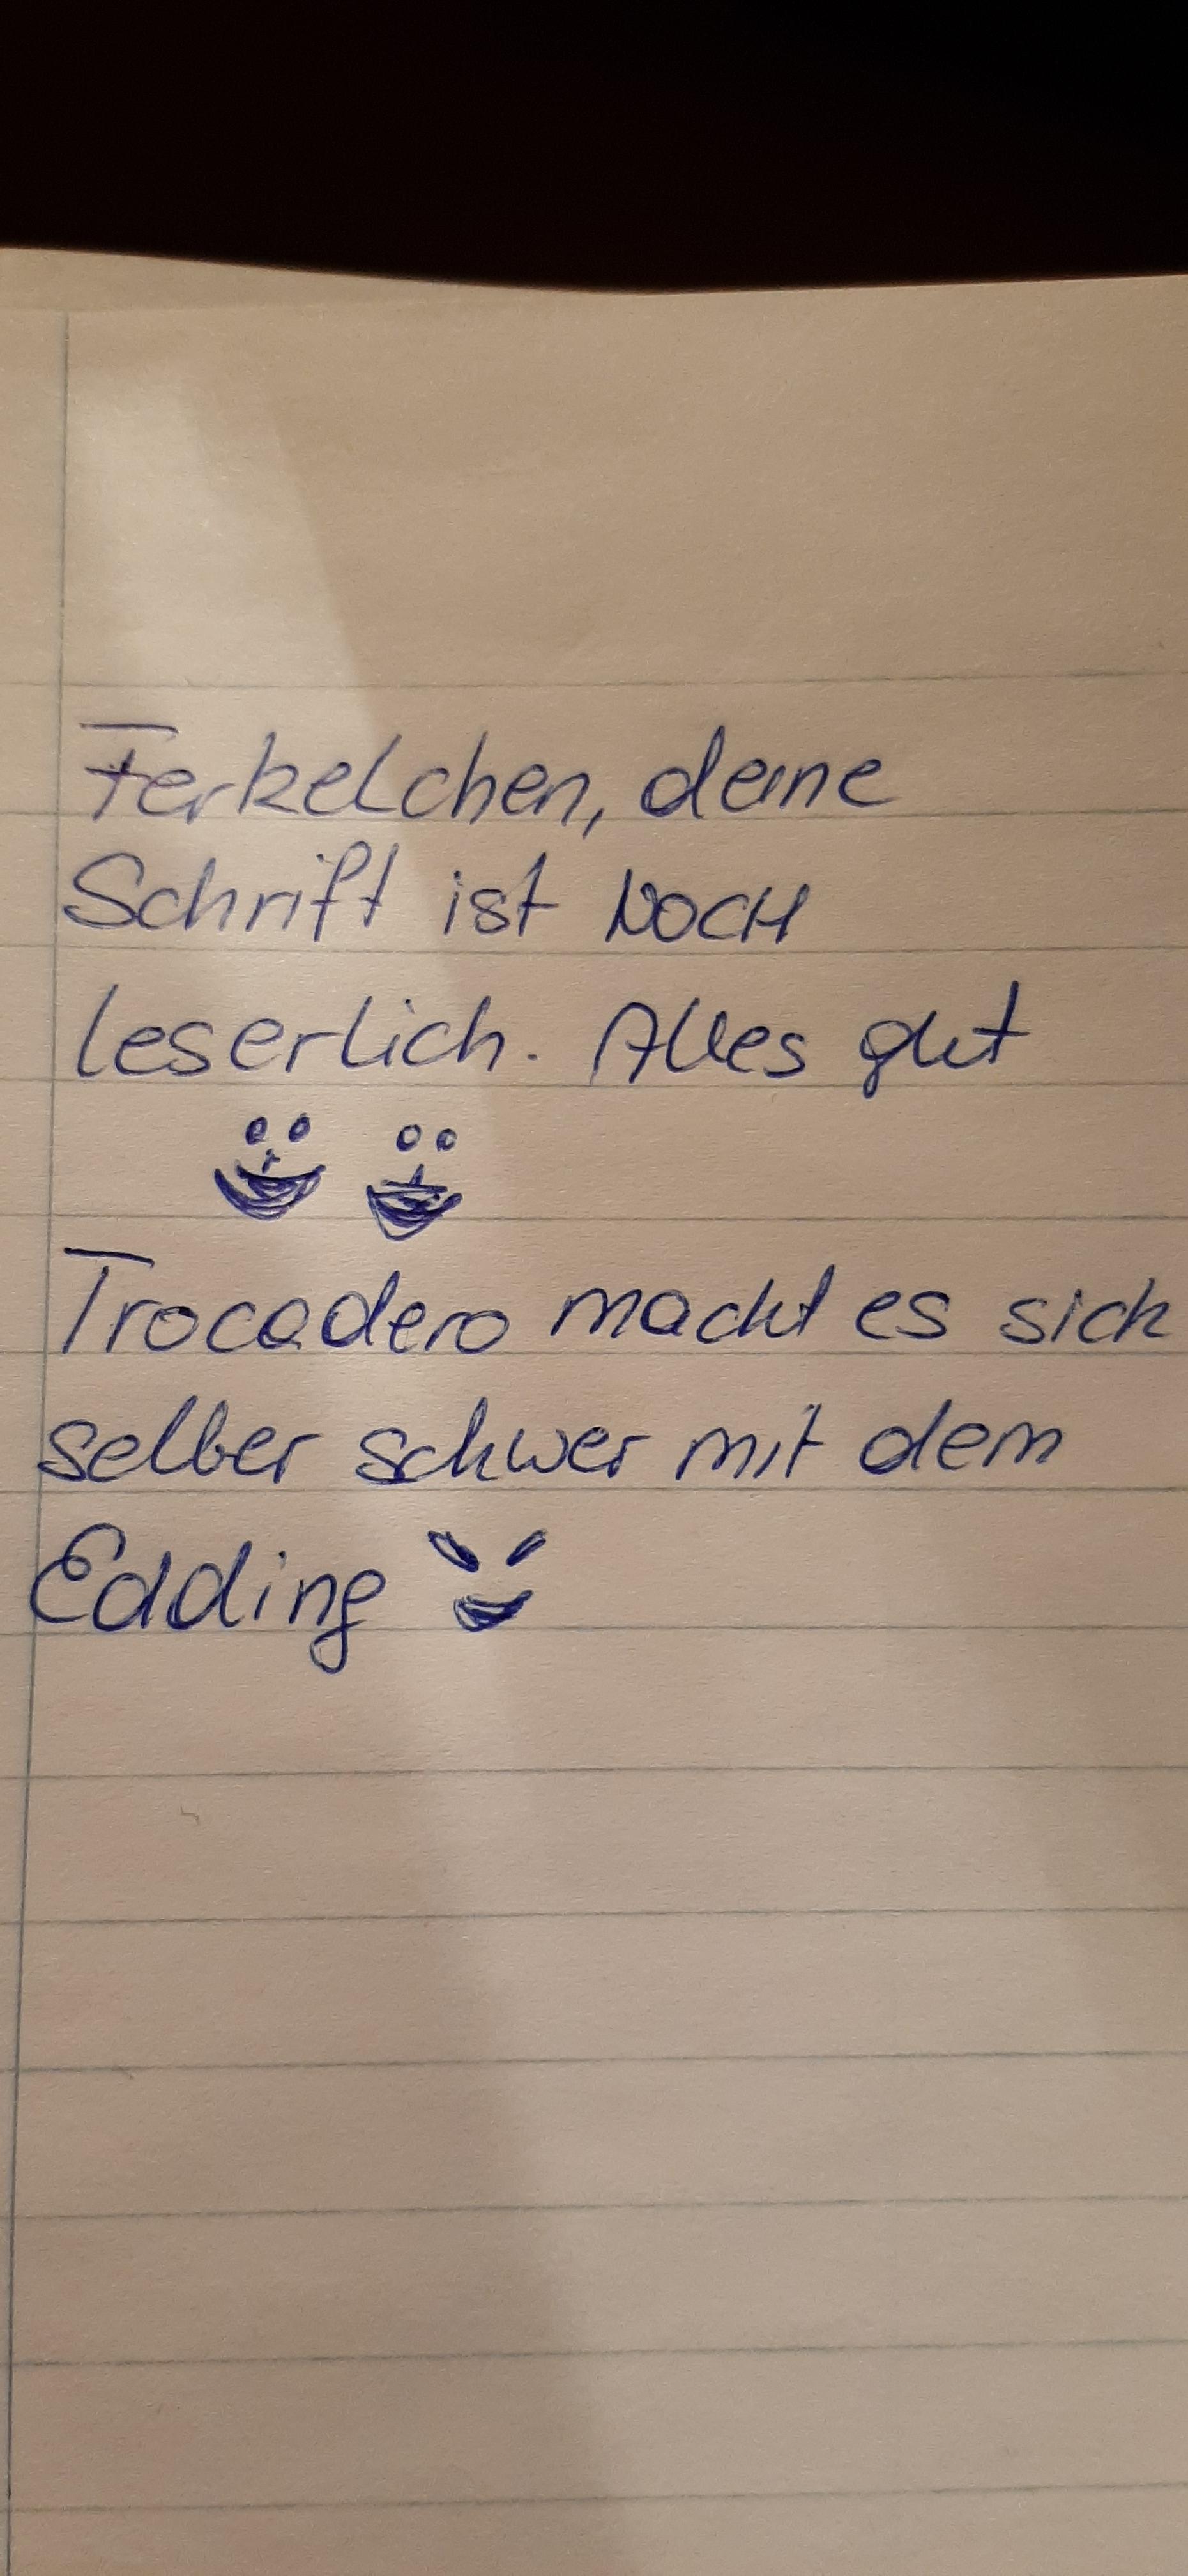 Ferkelchen, deine
Schrift ist NOCH
leserlich. Alles gut
Trocadero macht es sich
selber schwer mit dem
Edding